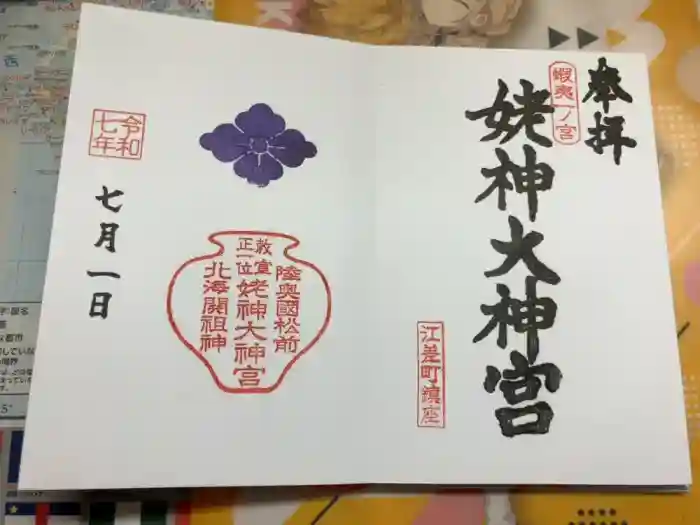 奉拝
蝦夷一ノ宮
姥神大神宮
江差町鎮座
陸奥國松前
勅宣
正一位
姥神大神宮
北海開祖神
令和
七年
七月一日